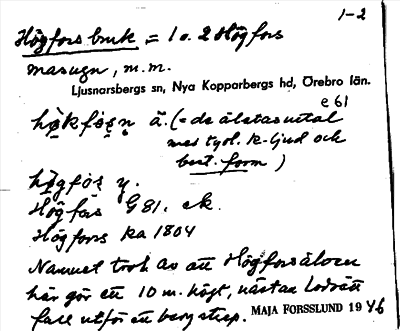 1-2
Högforsbruk = 1 o. 2 Högfors
masugn, m.m.
Ljusnarsbergs sn, Nya Kopparbergs hd, Örebro län.
e 61
hø̀kfòṣṇ ä. (= de älstas uttal
med tydl. k-ljud och
best. form)
hø̀gfòṣ y.
Högfors G81. ek.
Högfors ka 1804
Namnet trol. av att Högforsälven
här gör ett 10 m. högt, nästan lodrätt
fall utför en bergstup.
MAJA FORSSLUND 1946